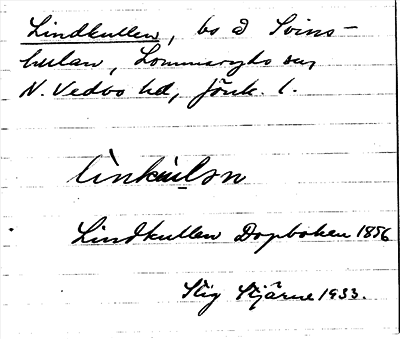 Lindkullen, bs å Svins-
hulan, Lommaryds sn,
N. Vedbo hd, Jönk. l.
linkúlṇ
Lindkullen Dopboken 1856
Stig Stjärne 1933.